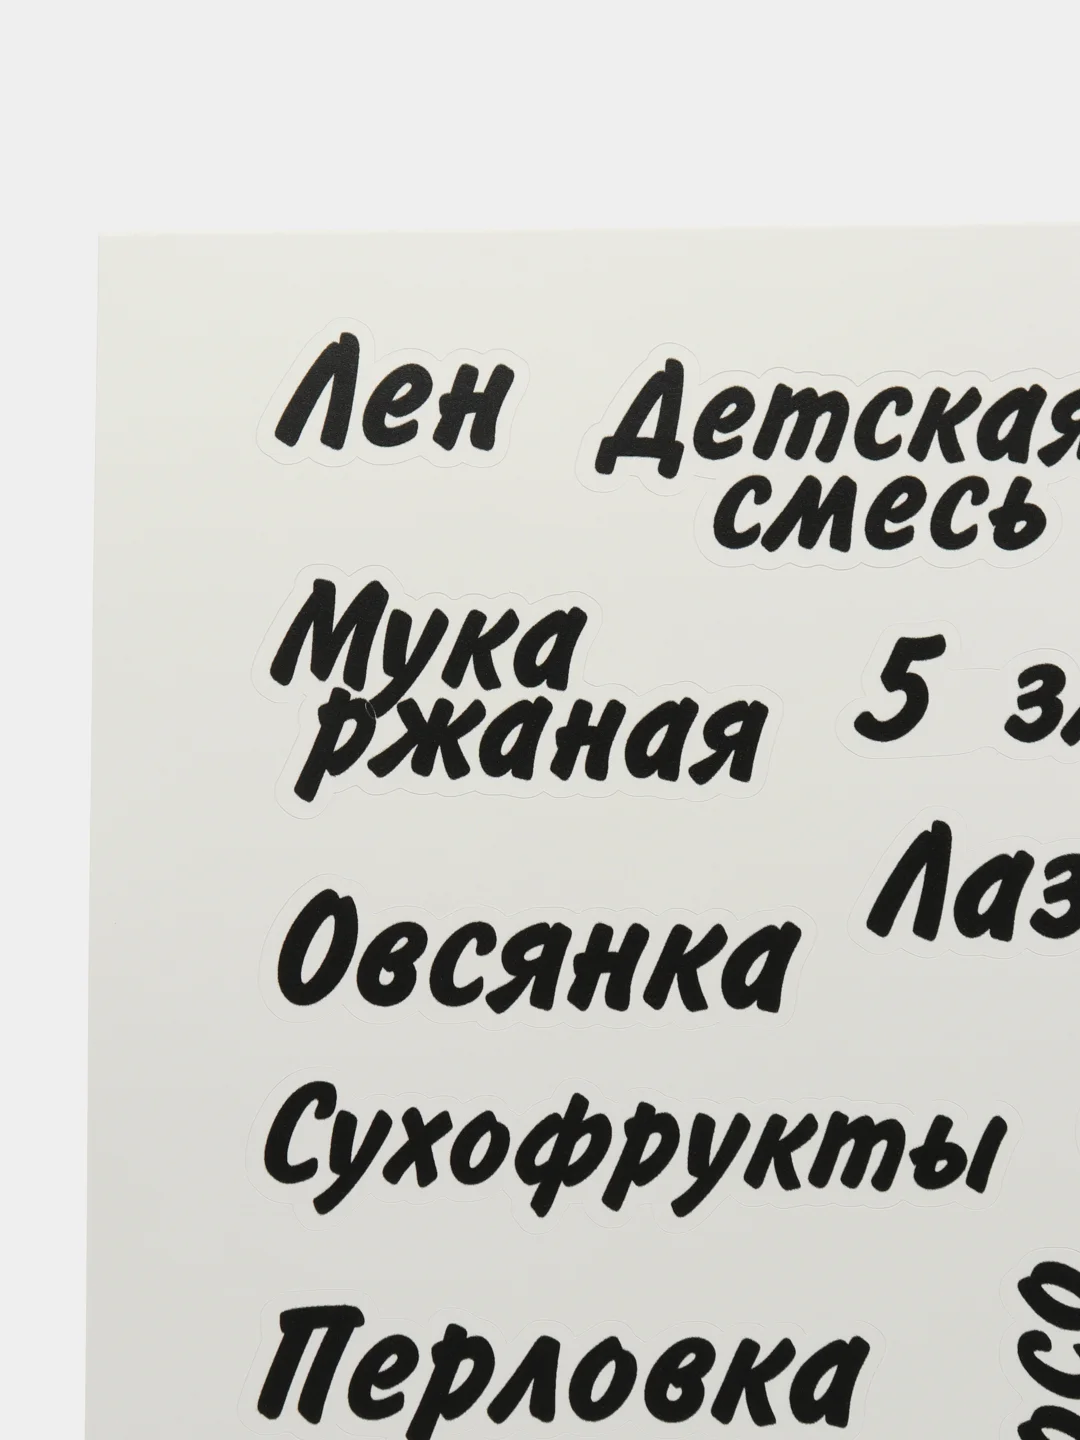 Лен
Детская
смесь
Мука
ржаная
5
Овсянка
Сухофрукты
Перловка